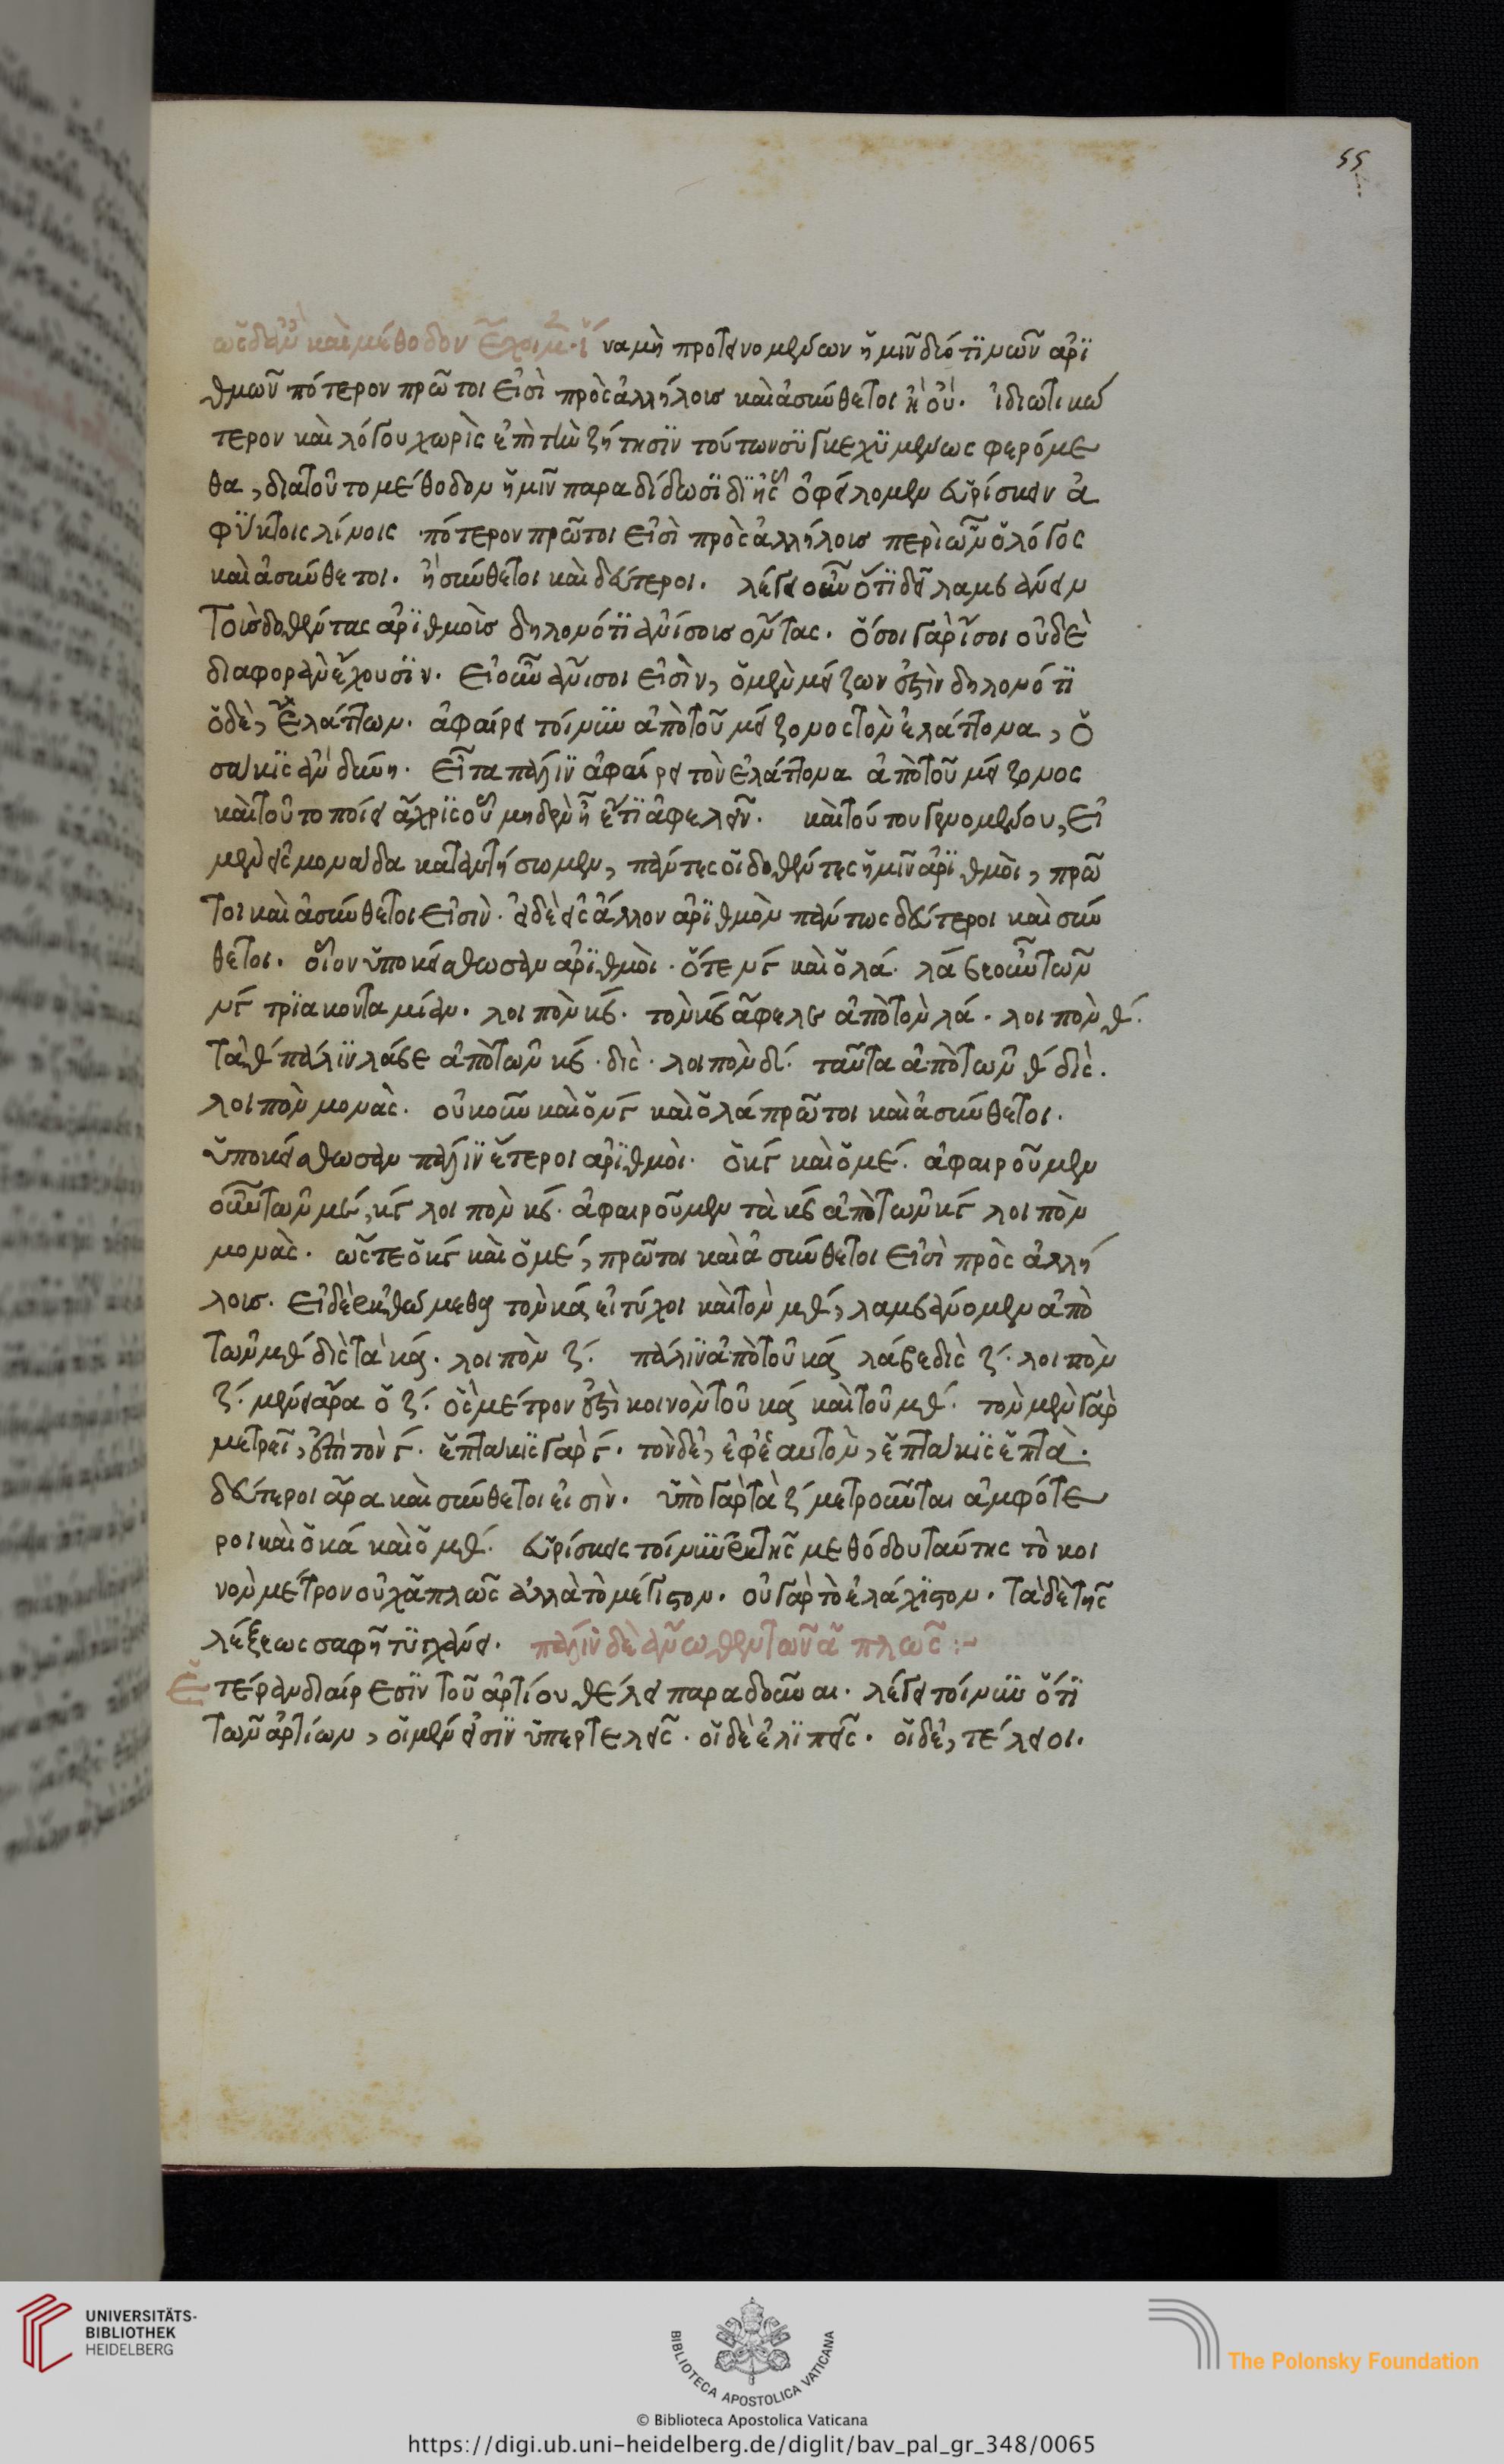 55
ὡς δ' ἂν καὶ μέθοδον ἔχοιμεν. ἵνα μὴ προτεινομένων ἡμῖν διό τινων ἀρι
θμῶν πότερον πρῶτοι εἰσὶ πρὸς ἀλλήλους καὶ ἀσύνθετοι ἢ οὐ. ἰδιωτικώ
τερον καὶ λόγου χωρὶς ἐπὶ τὴν ζήτησιν τούτων συγκεχυμένως φερόμε
θα, διὰ τοῦτο μέθοδον ἡμῖν παραδίδωσι δι' ἧς ὀφείλομεν εὑρίσκειν ἀ
φύκτοις λίνοις πότερον πρῶτοι εἰσὶ πρὸς ἀλλήλους περὶ ὧν ὁ λόγος
καὶ ἀσύνθετοι. ἢ σύνθετοι καὶ δεύτεροι. λέγει οὖν ὅτι δεῖ λαμβάνειν
τοὺς δοθέντας ἀριθμοὺς δηλονότι ἀνίσους ὄντας. ὅσοι γὰρ ἴσοι οὐδὲ
διαφορὰν ἔχουσιν. εἰ οὖν ἄνισοι εἰσὶν, ὁ μὲν μείζων ἐστὶν δηλονότι
ὁ δὲ, ἐλάττων. ἀφαίρει τοίνυν ἀπὸ τοῦ μείζονος τὸν ἐλάττονα, ὁ
σάκις ἂν δύνῃ. εἶτα πάλιν ἀφαίρει τὸν ἐλάττονα ἀπὸ τοῦ μείζονος
καὶ τοῦτο ποίει ἄχρις οὗ μηδὲν ᾖ ἔτι ἀφελεῖν. καὶ τούτου γενομένου, εἰ
μὲν εἰς μονάδα καταντήσωμεν, πάντες οἱ δοθέντες ἡμῖν ἀριθμοὶ, πρῶ
τοι καὶ ἀσύνθετοι εἰσὶν. εἰ δὲ εἰς ἄλλον ἀριθμὸν πάντως δεύτεροι καὶ σύν
θετοι. οἷον ὑποκείσθωσαν ἀριθμοὶ. ὅτε νγ καὶ ὁ λά. λάβε οὖν τῶν
νγ τριάκοντα μίαν. λοιπὸν κβ. τὸν κβ ἄφελε ἀπὸ τὸν λά. λοιπὸν θ.
τὰ θ πάλιν λάβε ἀπὸ τῶν κβ. δὶς. λοιπὸν δ. ταῦτα ἀπὸ τῶν θ δὶς.
λοιπὸν μονὰς. οὐκοῦν καὶ ὁ νγ καὶ ὁ λά πρῶτοι καὶ ἀσύνθετοι.
ὑποκείσθωσαν πάλιν ἕτεροι ἀριθμοὶ. ὁ κγ καὶ ὁ μέ. ἀφαιροῦμεν
οὖν τῶν μέ, κγ λοιπὸν κβ. ἀφαιροῦμεν τὰ κβ ἀπὸ τῶν κγ λοιπὸν
μονὰς. ὥστε ὁ κγ καὶ ὁ μέ, πρῶτοι καὶ ἀσύνθετοι εἰσὶ πρὸς ἀλλή
λους. εἰ δὲ ἐκθώμεθα τὸν κά εἰ τύχοι καὶ τὸν μθ, λαμβάνομεν ἀπὸ
τῶν μθ δὶς τὰ κά. λοιπὸν ζ. πάλιν ἀπὸ τοῦ κά λάβε δὶς ζ. λοιπὸν
ζ. μένει ἄρα ὁ ζ. ὃς μέτρον ἐστὶ κοινὸν τοῦ κά καὶ τοῦ μθ. τὸν μὲν γὰρ
μετρεῖ, ἐπὶ τὸν γ. ἑπτάκις γὰρ γ. τὸν δὲ, ἐφ' ἑαυτὸν, ἑπτάκις ἑπτὰ.
δεύτεροι ἄρα καὶ σύνθετοι εἰσὶν. ὑπὸ γὰρ τὰ ζ μετροῦνται ἀμφότε
ροι καὶ ὁ κά καὶ ὁ μθ. εὑρίσκεις τοίνυν ἐκ τῆς μεθόδου ταύτης τὸ κοι
νὸν μέτρον οὐχ ἁπλῶς ἀλλὰ τὸ μέγιστον. οὐ γὰρ τὸ ἐλάχιστον. τὰ δὲ τῆς
λέξεως σαφῆ τυγχάνει. πάλιν δὲ ἄνωθεν τῶν ἁπλῶς :~
Ἑτέραν διαίρεσιν τοῦ ἀρτίου θέλει παραδοῦναι. λέγει τοίνυν ὅτι
τῶν ἀρτίων, οἱ μέν εἰσιν ὑπερτελεῖς. οἱ δὲ ἐλιπεῖς. οἱ δὲ, τέλειοι.
UNIVERSITÄTS-
BIBLIOTHEK
HEIDELBERG
BIBLIOTECA APOSTOLICA VATICANA
The Polonsky Foundation
© Biblioteca Apostolica Vaticana
https://digi.ub.uni-heidelberg.de/diglit/bav_pal_gr_348/0065